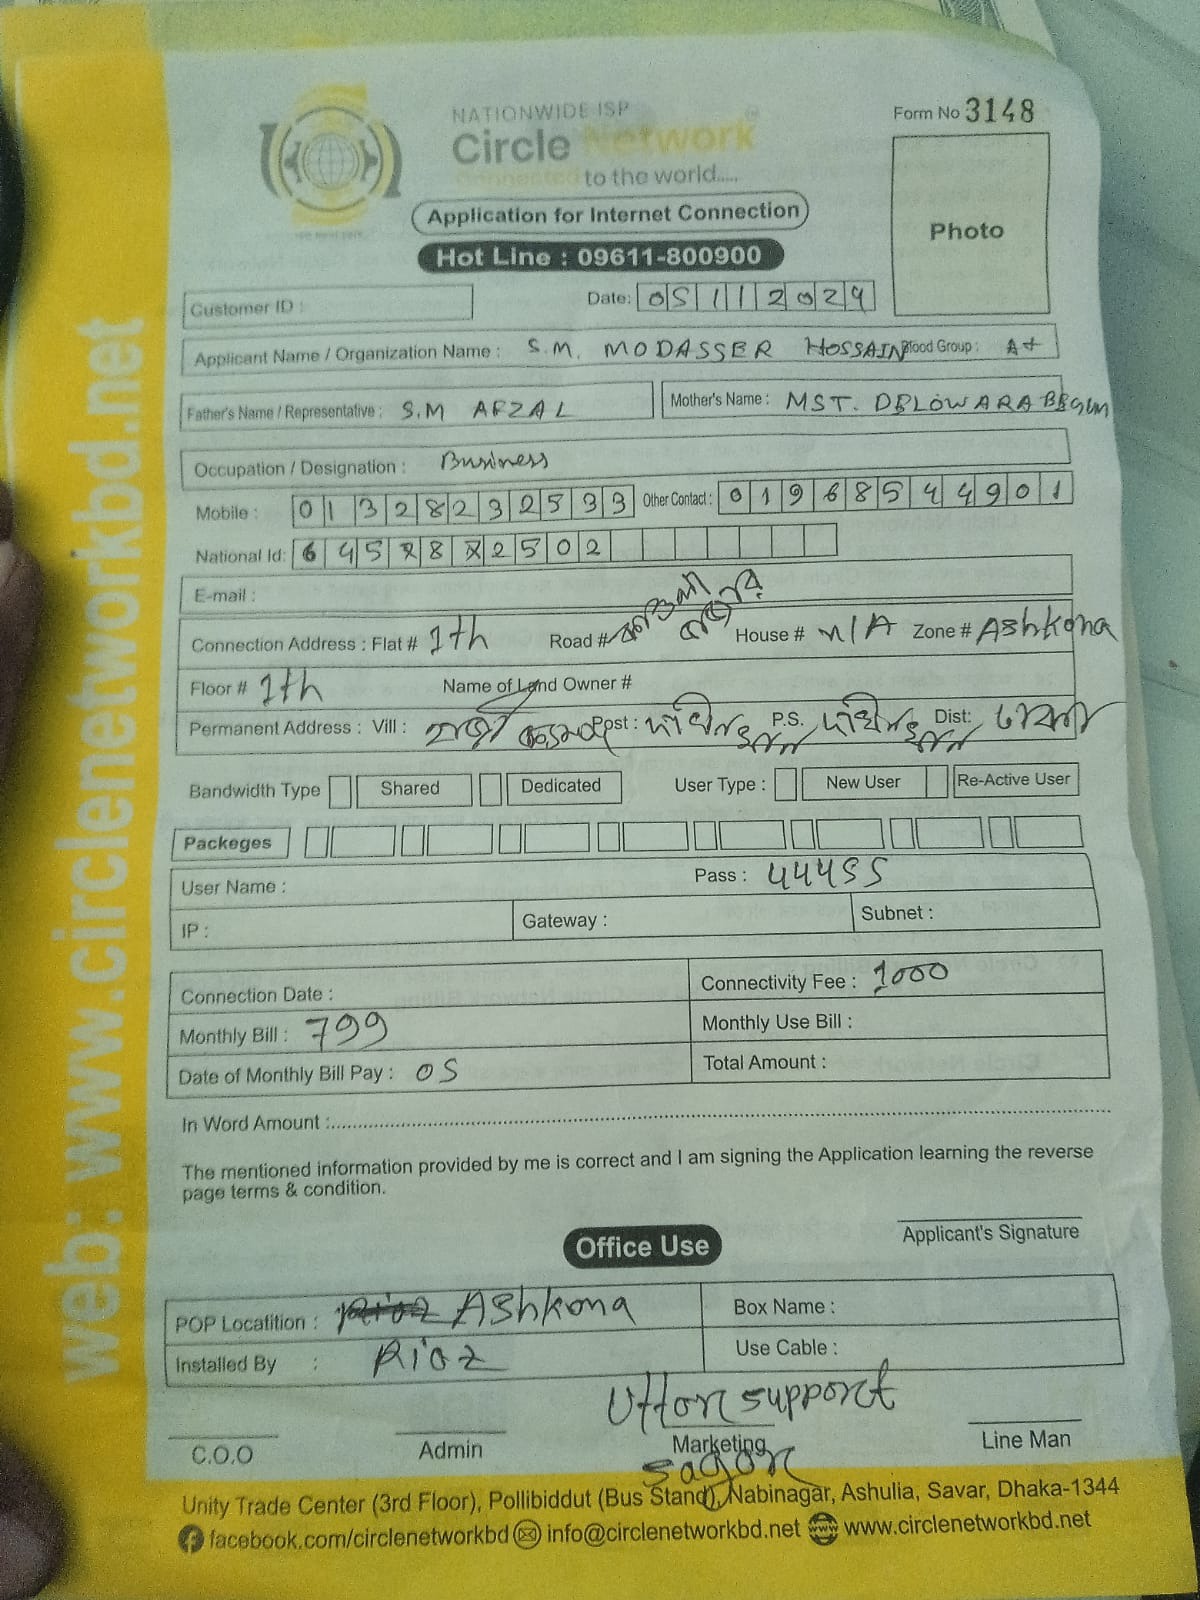 NATIONWIDE ISP
Circle Network
Connected to the world.....
Form No 3148
Photo
Application for Internet Connection
Hot Line : 09611-800900
Customer ID :
Date: 05112024
Applicant Name / Organization Name : S.M. MODASSER HOSSAIN Blood Group : A+
Father's Name / Representative : S.M AFZAL Mother's Name : MST. DELOWARA BEGUM
Occupation / Designation : Business
Mobile : 01328292533 Other Contact : 01968544901
National Id:
E-mail :
Connection Address : Flat # 1th Road # House # N/A Zone # Ashkona
Floor # 1th Name of Land Owner #
Permanent Address : Vill : Post : P.S. Dist:
Bandwidth Type Shared Dedicated User Type : New User Re-Active User
Packeges
User Name : Pass : 44455
IP : Gateway : Subnet :
Connection Date : Connectivity Fee : 1000
Monthly Bill : 799 Monthly Use Bill :
Date of Monthly Bill Pay : 05 Total Amount :
In Word Amount :
The mentioned information provided by me is correct and I am signing the Application learning the reverse
page terms & condition.
Applicant's Signature
Office Use
POP Locatition : Ashkona Box Name :
Installed By : Riaz Use Cable :
Uttor support
C.O.O Admin Marketing Line Man
Sagor
Unity Trade Center (3rd Floor), Pollibiddut (Bus Stand), Nabinagar, Ashulia, Savar, Dhaka-1344
facebook.com/circlenetworkbd info@circlenetworkbd.net www.circlenetworkbd.net
web: www.circlenetworkbd.net